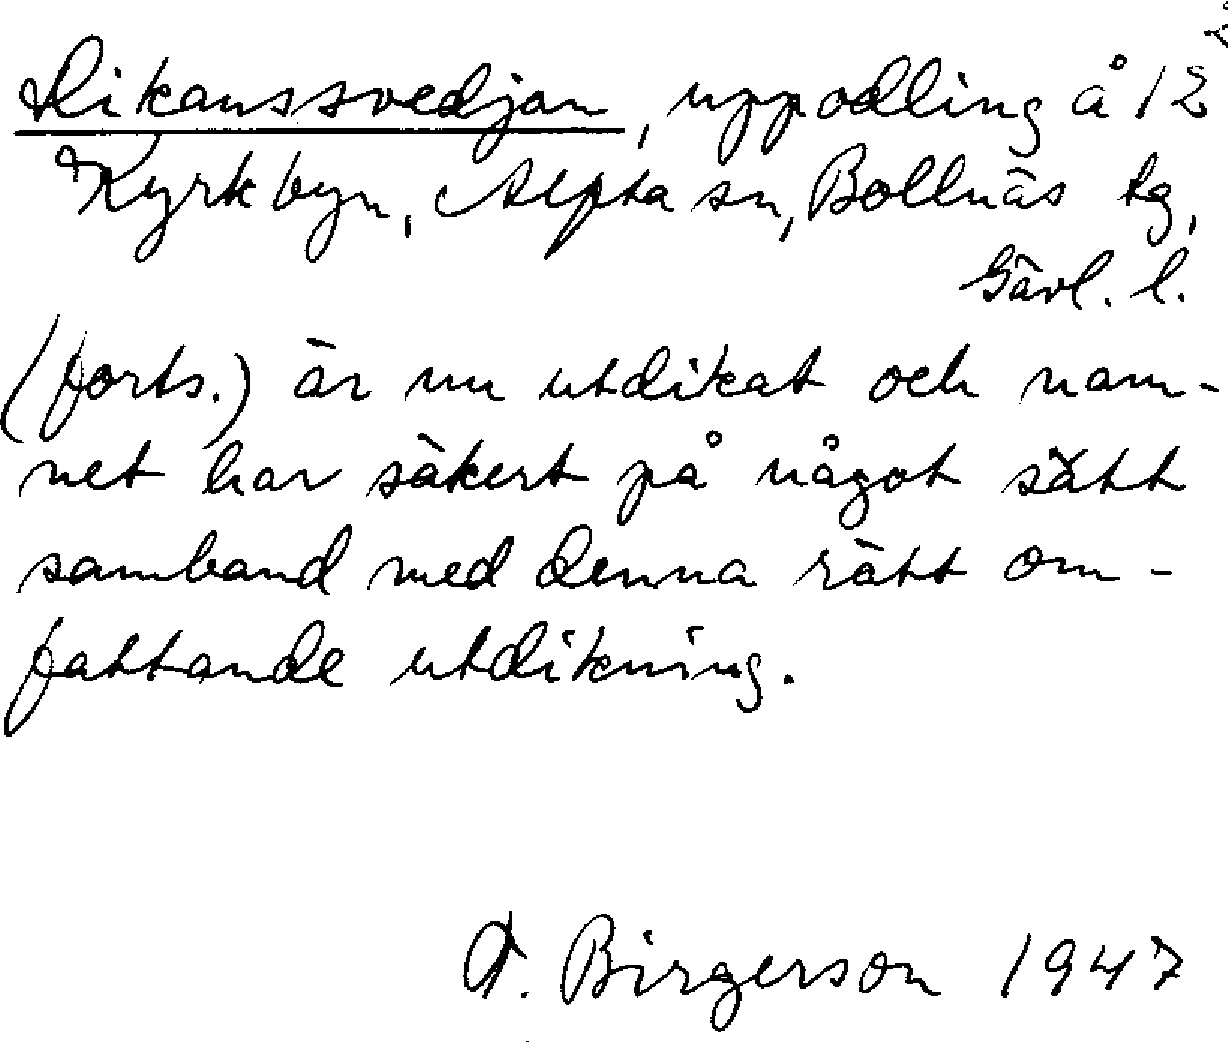 Dikanssvedjan, uppodling å 12
Kyrkbyn, Alfta sn, Bollnäs tg,
Gävl. l.
(forts.) är nu utdikat och nam-
net har säkert på något sätt
samband med denna rätt om-
fattande utdikning.
Birgerson 1947